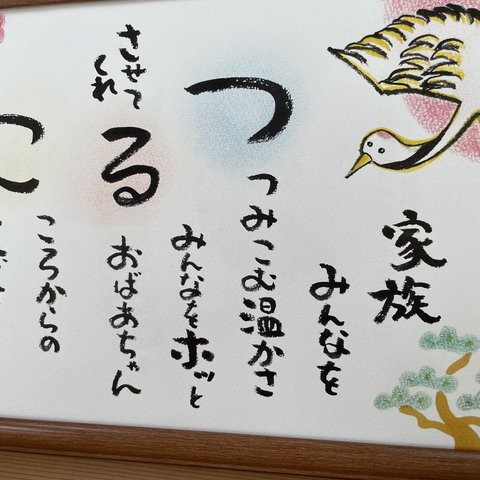 家族
みんなを
つ
つみこむ温かさ
みんなをホッと
させて
くれ
る
おばあちゃん
こ
ころからの